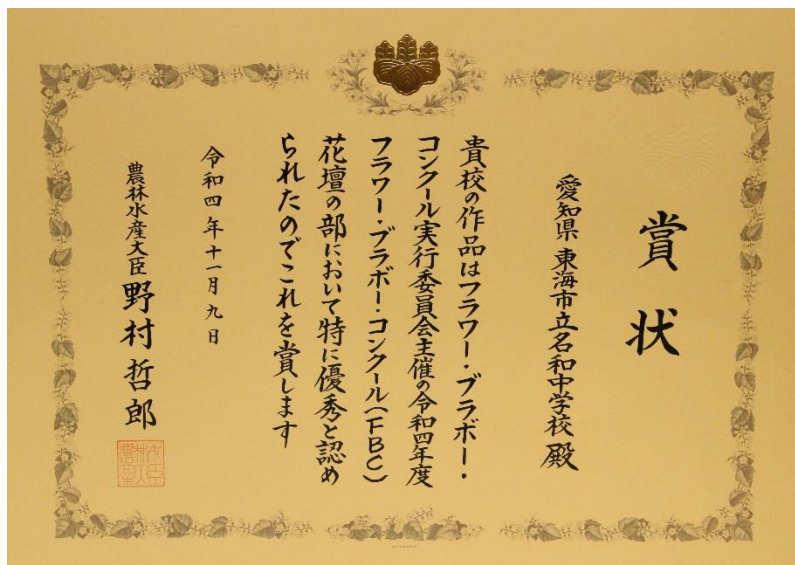 賞状
愛知県 東海市立名和中学校 殿
貴校の作品はフラワー・ブラボー・
コンクール実行委員会主催の令和四年度
フラワー・ブラボー・コンクール(FBC)
花壇の部において特に優秀と認め
られたのでこれを賞します
令和四年十一月九日
農林水産大臣 野村哲郎